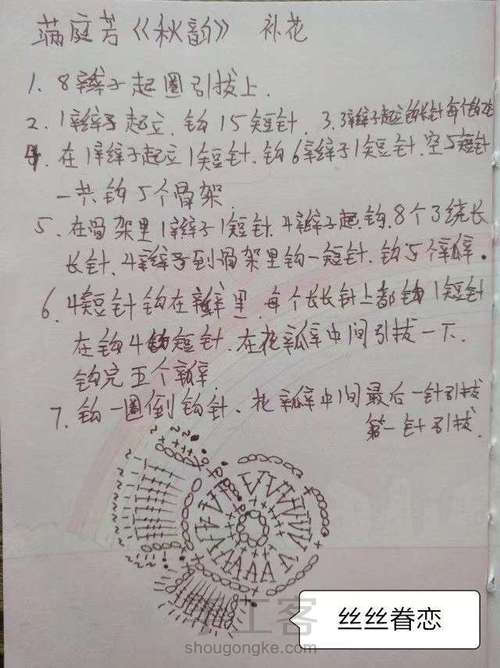 满庭芳《秋韵》 补花
1. 8辫子起圈引拔上.
2. 1辫子起立. 钩15短针. 3. 3辫子起立钩长针每个
4. 在1辫子起立1短针. 钩6辫子1短针. 空5短针
一共钩5个骨架.
5. 在骨架里1辫子1短针. 4辫子起. 钩. 8个3绕长
长针. 4辫子到骨架里钩一短针. 钩5个瓣.
6. 4短针钩在瓣里. 每个长长针上都钩1短针
在钩4短针. 在花瓣中间引拔一下.
钩完五个瓣.
7. 钩一圈倒钩针. 花瓣中间最后一针引拔
第一针引拔.
手工客
丝丝眷恋
shougongke.com